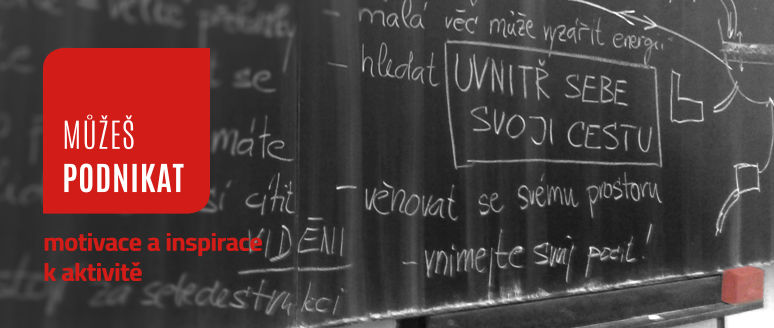 malá věc může vyzářit energii
- hledat UVNITŘ SEBE
SVOJI CESTU
se
máte
cítit
- věnovat se svému prostoru
VIDĚNÍ
- vnímejte svůj pocit!
za sebedestrukci
MŮŽEŠ
PODNIKAT
motivace a inspirace
k aktivitě